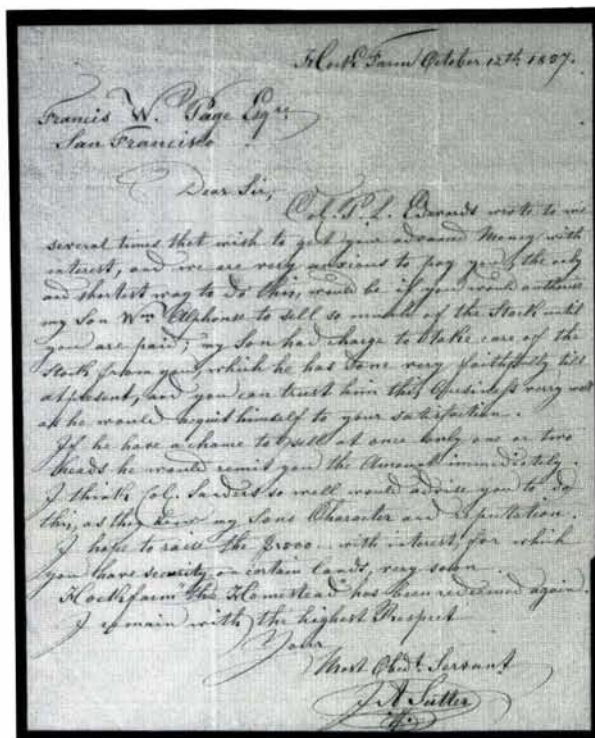 Hock Farm October 12th 1857.
Francis W. Page Esqre
San Francisco
Dear Sir,
Col. P. L. Edwards wrote to me
several times that wish to get your advanced Money with
interest, and we are very anxious to pay you, the only
and shortest way to do this, would be if you would authorise
my Son Wm Alphonse to sell so much of the Stock until
you are paid; my Son had charge to take care of the
Stock from you, which he has done very faithfully till
at present, and you can trust him this Business very well
as he would acquit himself to your satisfaction.
If he have a chance to sell at once only one or two
heads he would remit you the Amount immediately.
I think Col. Sanders so well would advise you to do
this, as they know my Sons Character and reputation.
I hope to raise the with interest, for which
you have security on certain lands, very soon.
Hockfarm the Homestead has been redeemed again.
I remain with the highest Respect
Your
Most Obedt. Servant
J A Sutter